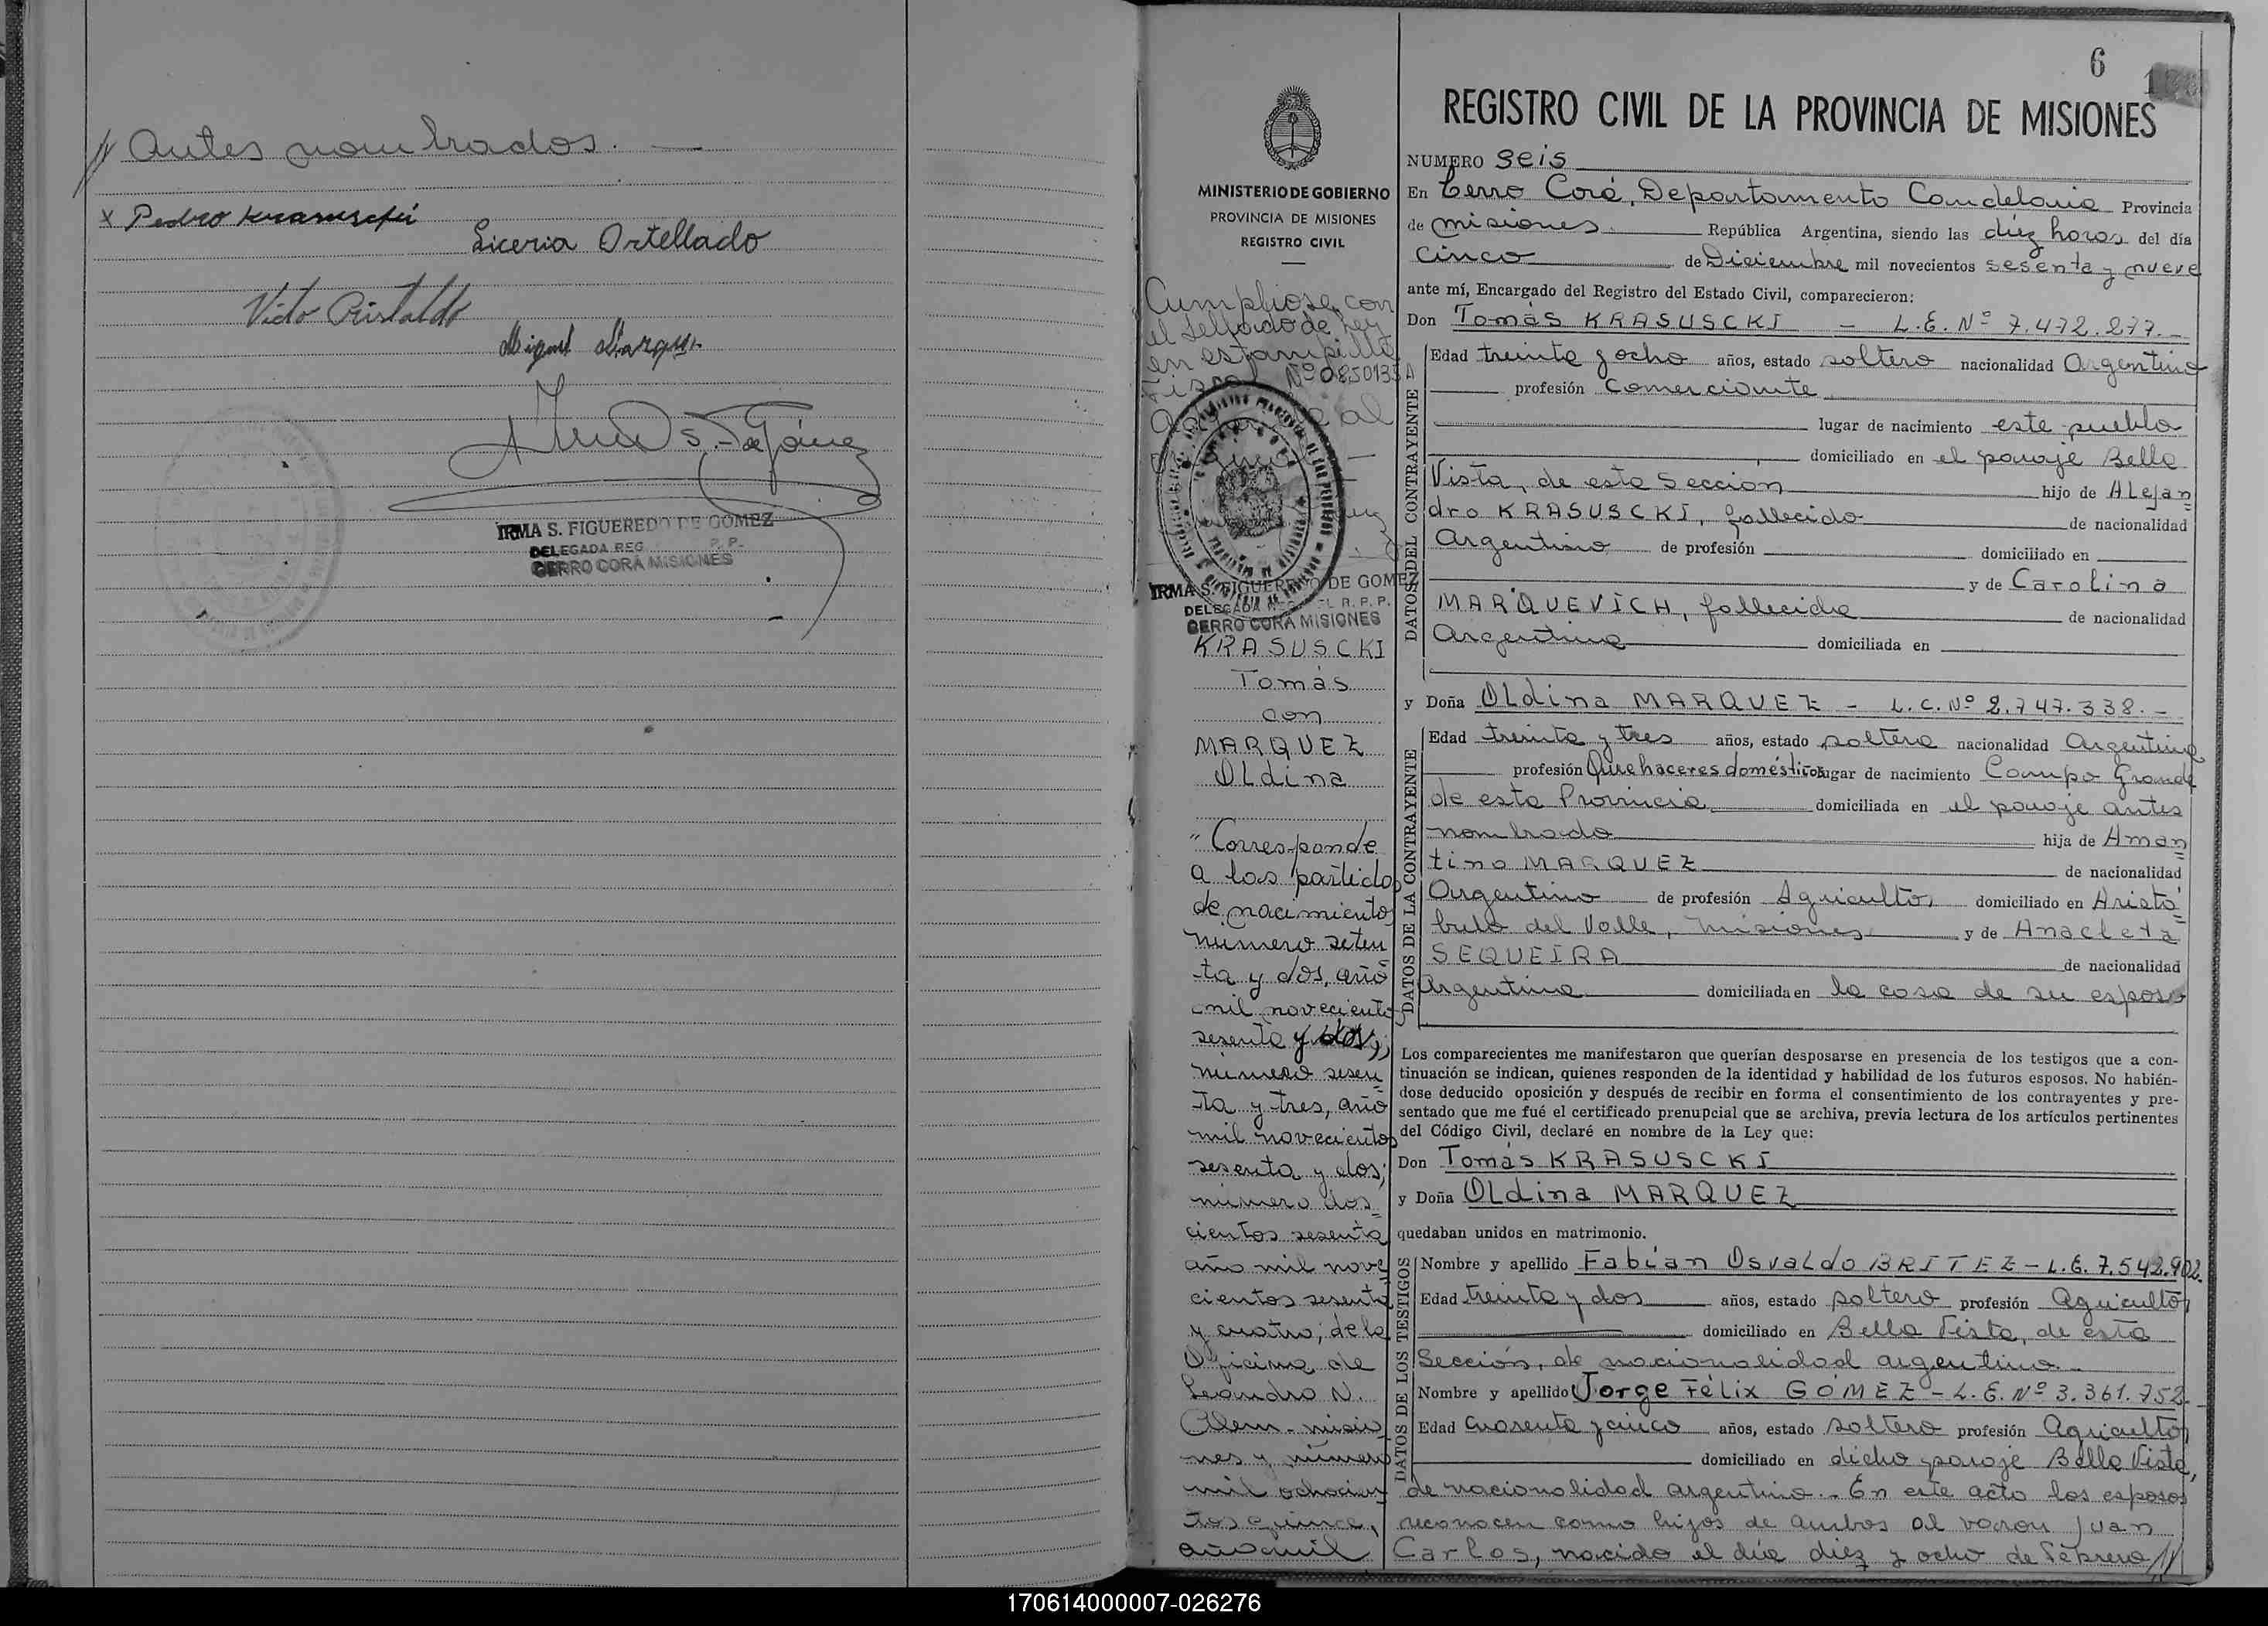 // Antes nombrados. —
x Pedro Krasuscki
Liceria Ortellado
Victo Ristaldo
Miguel Marquez
IRMA S. FIGUEREDO DE GOMEZ
DELEGADA REG. R. P.
CERRO CORA MISIONES
6
MINISTERIO DE GOBIERNO
PROVINCIA DE MISIONES
REGISTRO CIVIL
Cumpliose con
el sellado de ley
en estampilla
fiscal Nº 0850135A
al
IRMA S. FIGUEREDO DE GOMEZ
DELEGADA REG. R. P. P.
CERRO CORA MISIONES
KRASUSCKI
Tomás
con
MARQUEZ
OLdina
"Corresponde
a las partidas
de nacimiento
número seten
ta y dos, año
mil novecientos
sesenta y dos,
número sesen
ta y tres, año
mil novecientos
sesenta y dos;
número dos=
cientos sesenta
año mil nove
cientos sesenta
y cuatro; de la
Oficina de
Leandro N.
Alem - misio
nes y número
mil ochocien
tos quince,
año mil
REGISTRO CIVIL DE LA PROVINCIA DE MISIONES
NUMERO seis
En Cerro Corá, Departamento Candelaria Provincia
de misiones República Argentina, siendo las diez horas del día
cinco de Diciembre mil novecientos sesenta y nueve
ante mí, Encargado del Registro del Estado Civil, comparecieron:
Don Tomás KRASUSCKI - L.E. Nº 7.472.277.-
DATOS DEL CONTRAYENTE
Edad treinta y ocho años, estado soltero nacionalidad Argentino
profesión Comerciante
lugar de nacimiento este pueblo
domiciliado en el paraje Bella
Vista, de esta Sección hijo de ALejan=
dro KRASUSCKI, fallecido de nacionalidad
Argentino de profesión domiciliado en
y de Carolina
MARQUEVICH, fallecida de nacionalidad
Argentina domiciliada en
y Doña OLdina MARQUEZ - L.C. Nº 2.747.338.-
DATOS DE LA CONTRAYENTE
Edad treinta y tres años, estado soltera nacionalidad Argentina
profesión Quehaceres domésticos lugar de nacimiento Campo Grande
de esta Provincia domiciliada en el paraje antes
nombrado hija de Aman=
tino MARQUEZ de nacionalidad
Argentino de profesión Agricultor domiciliado en Aristó=
bulo del Valle, Misiones y de Anacleta
SEQUEIRA de nacionalidad
Argentina domiciliada en la casa de su esposo
Los comparecientes me manifestaron que querían desposarse en presencia de los testigos que a con-
tinuación se indican, quienes responden de la identidad y habilidad de los futuros esposos. No habién-
dose deducido oposición y después de recibir en forma el consentimiento de los contrayentes y pre-
sentado que me fué el certificado prenupcial que se archiva, previa lectura de los artículos pertinentes
del Código Civil, declaré en nombre de la Ley que:
Don Tomás KRASUSCKI
y Doña OLdina MARQUEZ
quedaban unidos en matrimonio.
DATOS DE LOS TESTIGOS
Nombre y apellido Fabián OsvaLdo BRITEZ - L.E. 7.542.902.
Edad treinta y dos años, estado soltero profesión Agricultor
domiciliado en Bella Vista, de esta
Sección, de nacionalidad argentina.-
Nombre y apellido Jorge Félix GÓMEZ - L.E. Nº 3.361.752.
Edad cuarenta y cinco años, estado soltero profesión Agricultor
domiciliado en dicho paraje Bella Vista,
de nacionalidad argentina.- En este acto los esposos
reconocen como hijos de ambos al varon Juan
Carlos, nacido el día diez y ocho de Febrero //
170614000007-026276